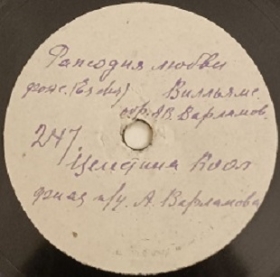 Рапсодия любви
фокс. (Блюз) Вилльямс
обр. Ав. Варламов.
247
Целестина Коол
джаз п/у. А. Варламова